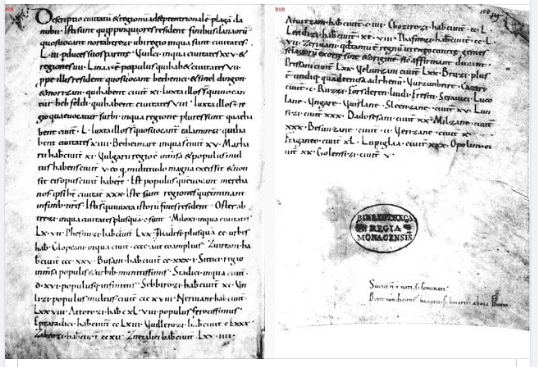 Descriptio civitatum & regionum ad septentrionalem plagam da
nubii. Isti sunt qui propinquiores resident finibus danaorum
quos vocant nortabtrezi ubi regio in qua sunt civitates
LIII per duces suos partite. Vuilci in qua civitates XCV &
regiones IIII. Linaa est populus qui hab& civitates VII
ppe illis resident quos vocant bethenici & smeldingon
& morizani qui habent civit XI. Iuxta illos sunt qui vocan
tur hehfeldi qui habent civitates VIII. Iuxta illos est re
gio quae vocatur surbi in qua regione plures sunt quae ha
bent civit L. Iuxta illos sunt quos vocant talaminzi qui ha
bent civitates XIIII. Beheimare in qua sunt civit XV. Marha
rii habent civit XI. Vulgarii regio est inmensa & populus mul
tus habens civit V eo quod multitudo magna ex eis sit & non
sit eis opus civit habere. Est populus quem vocant mereha
nos ipsi habent civit XXX. Iste sunt regiones que terminant
in finibus nris. Isti sunt qui iuxta istorum fines resident. Osterab
trezi in qua civitates plus quam C sunt. Miloxi in qua civitates
LXVII. Phesnuzi habent civit LXX. Thadesi plus quam CC urbes
hab. Glopeani in qua civit CCCC aut eo amplius. Zuireani ha
bent civit CCCXXV. Busani habent civit CCXXXI. Sittici regio
inmensa populis & urbibus munitissimis. Stadici in qua civit
DXVI populusque infinitus. Sebbirozi habent civit XC. Un
lizi populus multus civit CCCXVIII. Neriuani habent civit
LXXVIII. Attorozi hab CXLVIII populus ferocissimus.
Eptaradici habent civit CCLXIII. Vuillerozi habent civit CLXXX.
Zabrozi habent civit CCXII. Znetalici habent civit LXXIIII.
Aturezani habent civit CIIII. Chozirozi habent civit CCL.
Lendizi habent civit XCVIII. Thafnezi habent civit CCLVII.
Zeriuani quod tantum est regnum ut ex eo cunctae gentes
sclavorum exortae sint & originem sicut affirmant ducant.
Prissani civit LXX. Velunzani civit LXX. Bruzi plus
est undique quam de enisa ad rhenum. Vuizunbeire. Caziri
civit C. Ruzzi. Forsderen liudi. Fresiti. Seravici. Luco
lane. Ungare. Vuislane. Sleenzane civit XV. Lun
sizi civit XXX. Dadosesani civit XX. Milzane civit
XXX. Besunzane civit II. Verizane civit X.
Fraganeo civit XL. Lupiglaa civit XXX. Opolini ci
vit XX. Golensizi civit V.
BIBLIOTHECA
REGIA
MONACENSIS